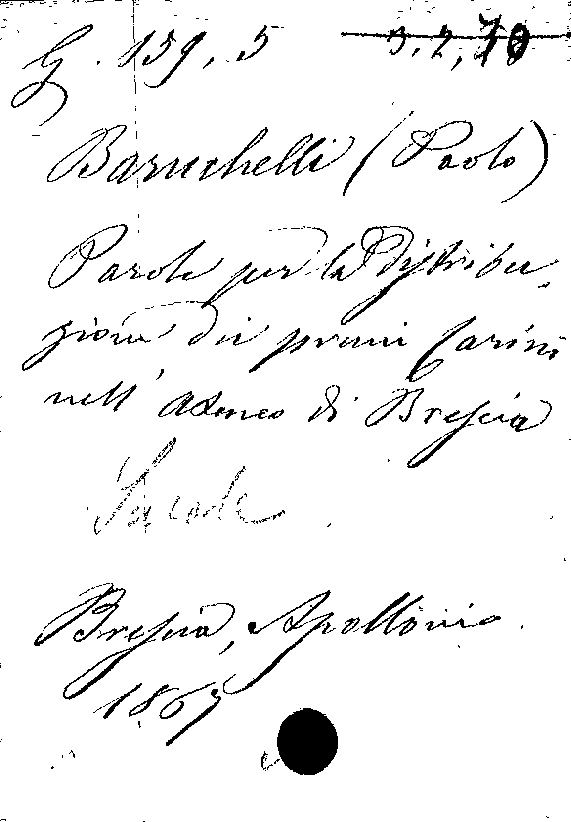 G. 159, 5 3. 2, 70
Baruchelli (Paolo)
Parole per la Distribu-
zione dei premi Carini
nell' ateneo di Brescia
Brescia, Apollonio
1865